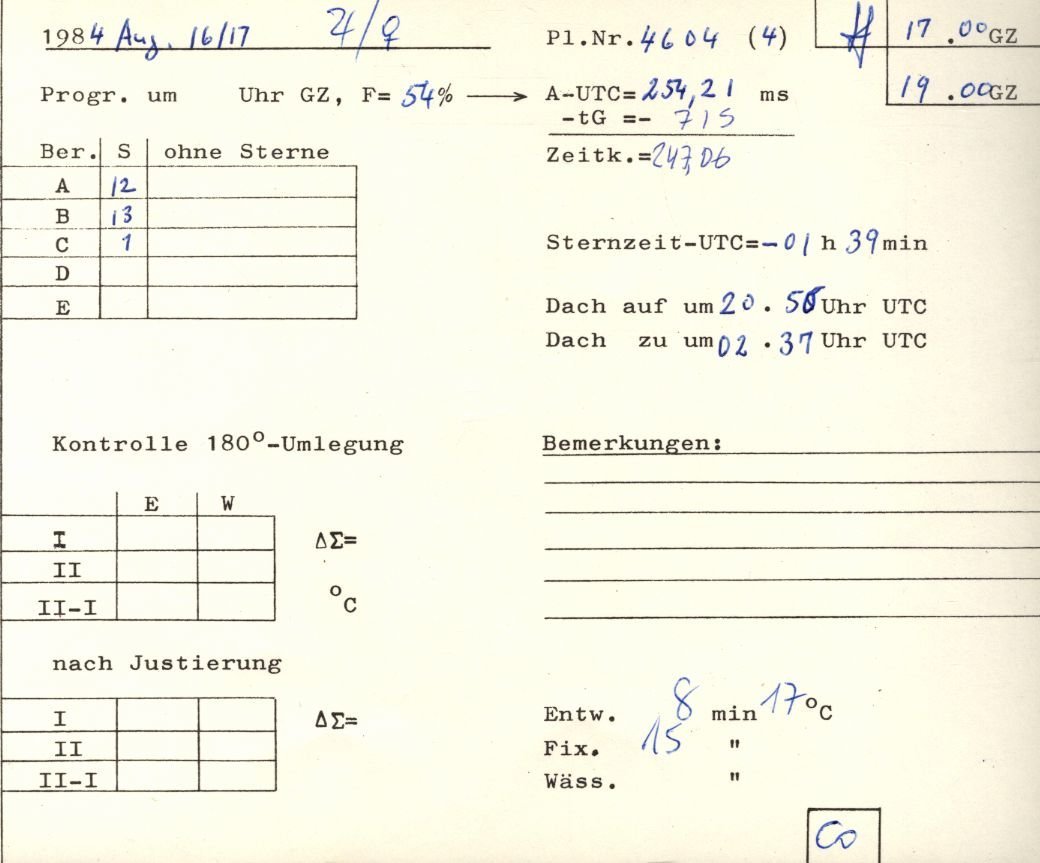 1984 Aug. 16/17 ♃/♀ Pl.Nr. 4604 (4) 17.00 GZ
Progr. um Uhr GZ, F= 54% → A-UTC= 254,21 ms 19.00 GZ
-tG =- 715
Ber. S ohne Sterne Zeitk.= 247,06
A 12
B 13
C 1 Sternzeit-UTC= -01 h 39 min
D
E Dach auf um 20. Uhr UTC
Dach zu um 02.37 Uhr UTC
Kontrolle 180°-Umlegung Bemerkungen:
E W
I ΔΣ=
II
II-I °C
nach Justierung
I ΔΣ= Entw. 8 min 17 °C
II Fix. 15 "
II-I Wäss. "
Co